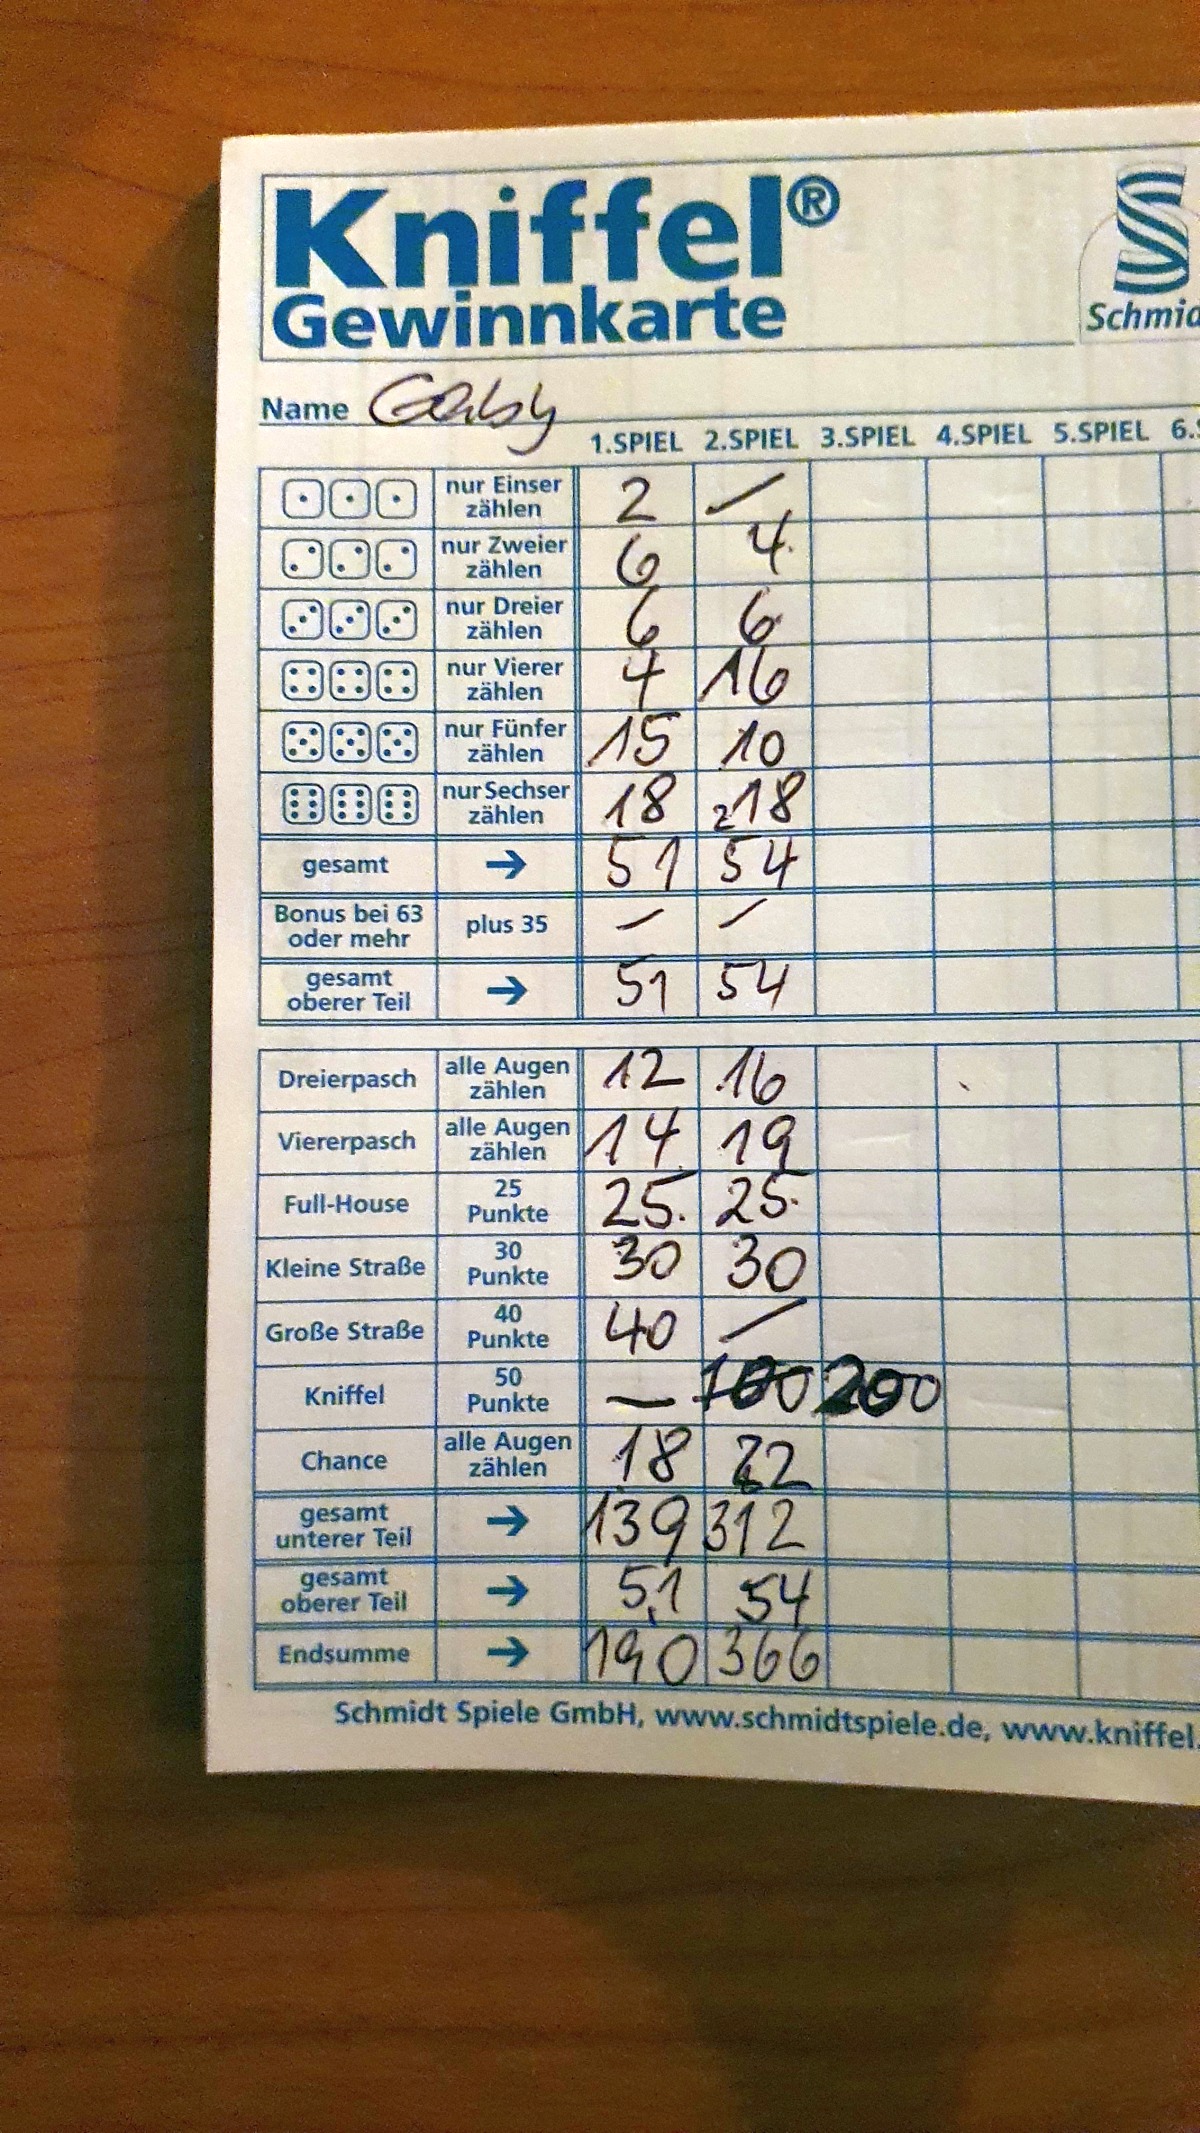 Kniffel®
Gewinnkarte
Schmid
Name Gaby
1.SPIEL 2.SPIEL 3.SPIEL 4.SPIEL 5.SPIEL 6.S
nur Einser zählen 2 –
nur Zweier zählen 6 4.
nur Dreier zählen 6 6
nur Vierer zählen 4 16
nur Fünfer zählen 15 10
nur Sechser zählen 18 2 18
gesamt → 51 54
Bonus bei 63 oder mehr plus 35 – –
gesamt oberer Teil → 51 54
Dreierpasch alle Augen zählen 12 16
Viererpasch alle Augen zählen 14 19
Full-House 25 Punkte 25. 25.
Kleine Straße 30 Punkte 30 30
Große Straße 40 Punkte 40 –
Kniffel 50 Punkte – 100 200
Chance alle Augen zählen 18 22
gesamt unterer Teil → 139 312
gesamt oberer Teil → 51 54
Endsumme → 190 366
Schmidt Spiele GmbH, www.schmidtspiele.de, www.kniffel.